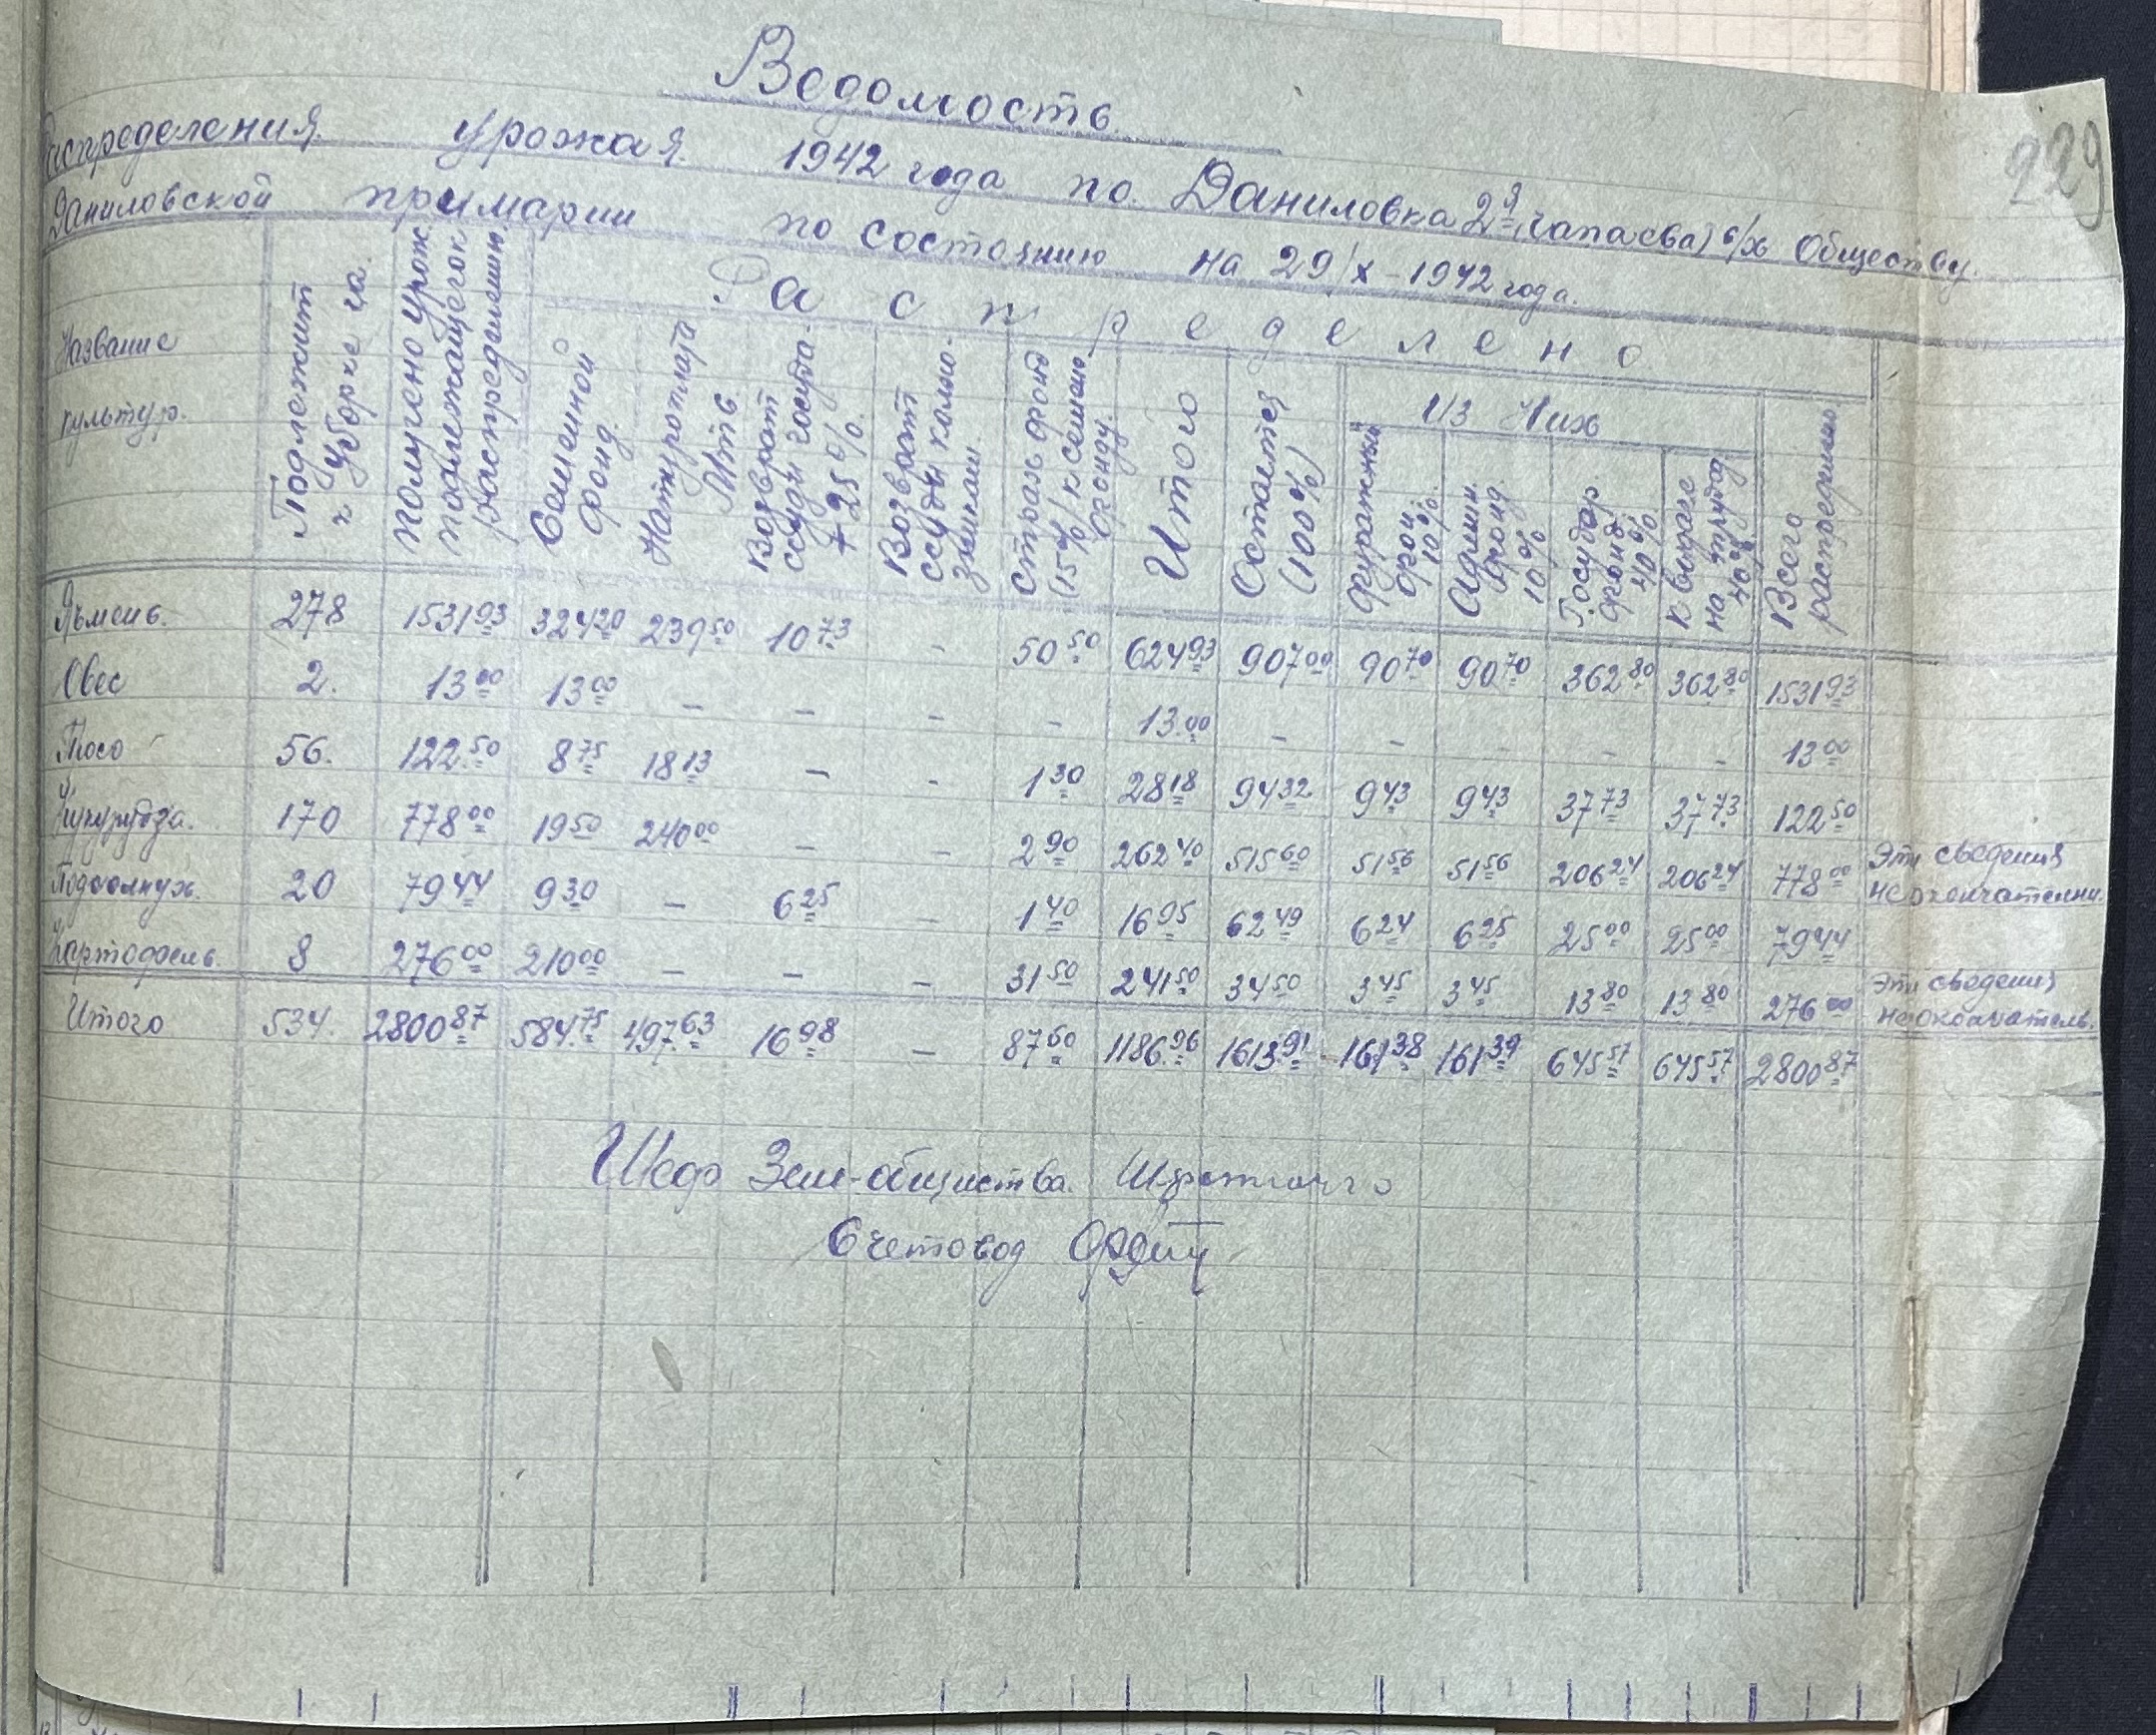 229
Ведомость
Распределения урожая 1942 года по Даниловка 2я (Чапаева) с/х Обществу
Даниловской примарии по состоянию на 29/X-1942 года.
Название культур. | Подлежит к уборке га. | Получено урож. подлежащего к распределению | Распределено
Семенной фонд. | Натуроплата Мтс | Возврат ссуды госуда. + 25% | Возврат ссуды колхо- зникам | Страх. фонд (15%) к семенно. фонду. | Итого | Остается (100%) | Из них | Всего распределено
фуражный фон. 10% | Админ. фонд. 10% | Государ. фонд 40% | К выдаче на трудод. 40%
Ячмень. 278 1531 93 324 20 239 50 10 73 - 50 50 624 93 907 00 90 70 90 70 362 80 362 80 1531 93
Овес 2. 13 00 13 00 - - - - 13.00 - - - - - 13 00
Просо 56. 122.50 8 75 18 13 - - 1 30 28 18 94 32 9 43 9 43 37 73 37 73 122 50
Кукурудза. 170 778 00 19 50 240 00 - - 2 90 262 40 515 60 51 56 51 56 206 24 206 24 778 00 Эти сведения
неокончательни.
Подсолнух. 20 79 44 9 30 - 6 25 - 1 40 16 95 62 49 6 24 6 25 25 00 25 00 79 44
Картофель. 8 276 00 210 00 - - - 31 50 241 50 34 50 3 45 3 45 13 80 13 80 276 00 Эти сведения
неокончатель.
Итого 534. 2800 87 584.75 497.63 16 98 - 87 60 1186.96 1613.91 161 38 161 39 645 57 645 57 2800 87
Шеф Зем-общества.
Счетовод